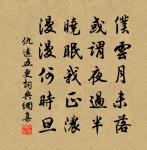 僕雲月未落
或謂夜過半
曉眠我正濃
漫漫何時旦
仇遠五更詞典網